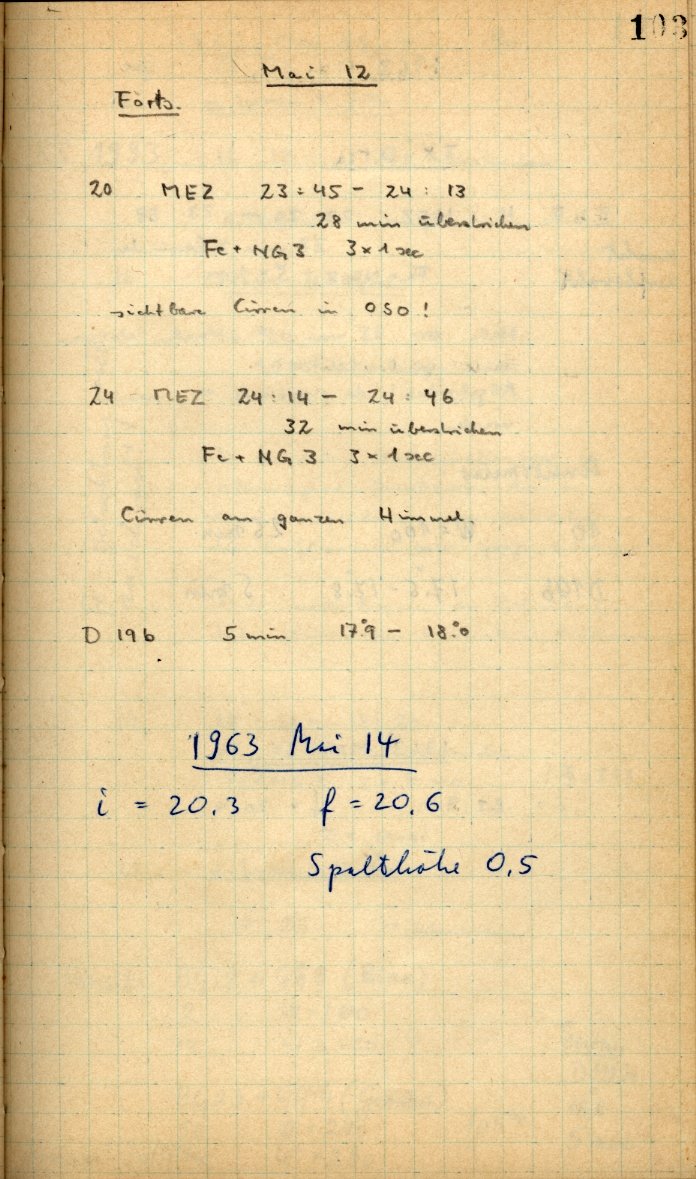 103
Mai 12
Forts.
20 MEZ 23:45 - 24:13
28 min überstrichen
Fe + NG 3 3 x 1 sec
sichtbare Cirren in OSO!
24 MEZ 24:14 - 24:46
32 min überstrichen
Fe + NG 3 3 x 1 sec
Cirren am ganzen Himmel.
D 196 5 min 17.°9 - 18.°0
1963 Mai 14
i = 20.3 f = 20.6
Spalthöhe 0,5